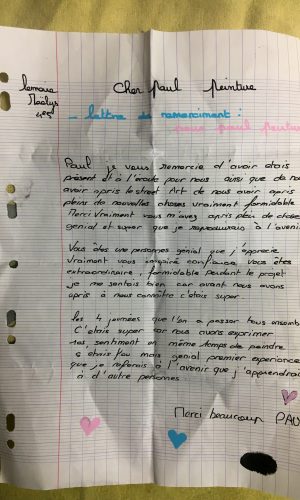 Lemoine
Maëlys
4e5
Cher paul peinture
- lettre de remerciment :
pour paul peinture
Paul je vous remercie d'avoir etais
présent et à l'écoute pour nous ainsi que de nous
avoir apris le street Art de nous avoir apris
pleins de nouvelles choses vraiment formidable
Merci vraiment vous m'avez apris plein de choses
genial et super que je reproduirais à l'avenir
Vous êtes une personnes génial que j'apprecie
vraiment vous inspiré confiance vous êtes
extraordinaire, formidable pendant le projet
je me sentais bien car avant nous avons
apris à nous connaître c'étais super
les 4 journées que l'on a passer tous ensemble
C'étais super car nous avons exprimer
nos sentiment en même temps de peindre
c'étais fou mais genial premier experience
que je referais à l'avenir que j'apprendrai
à d'autre personnes
Merci beaucoup PAUL